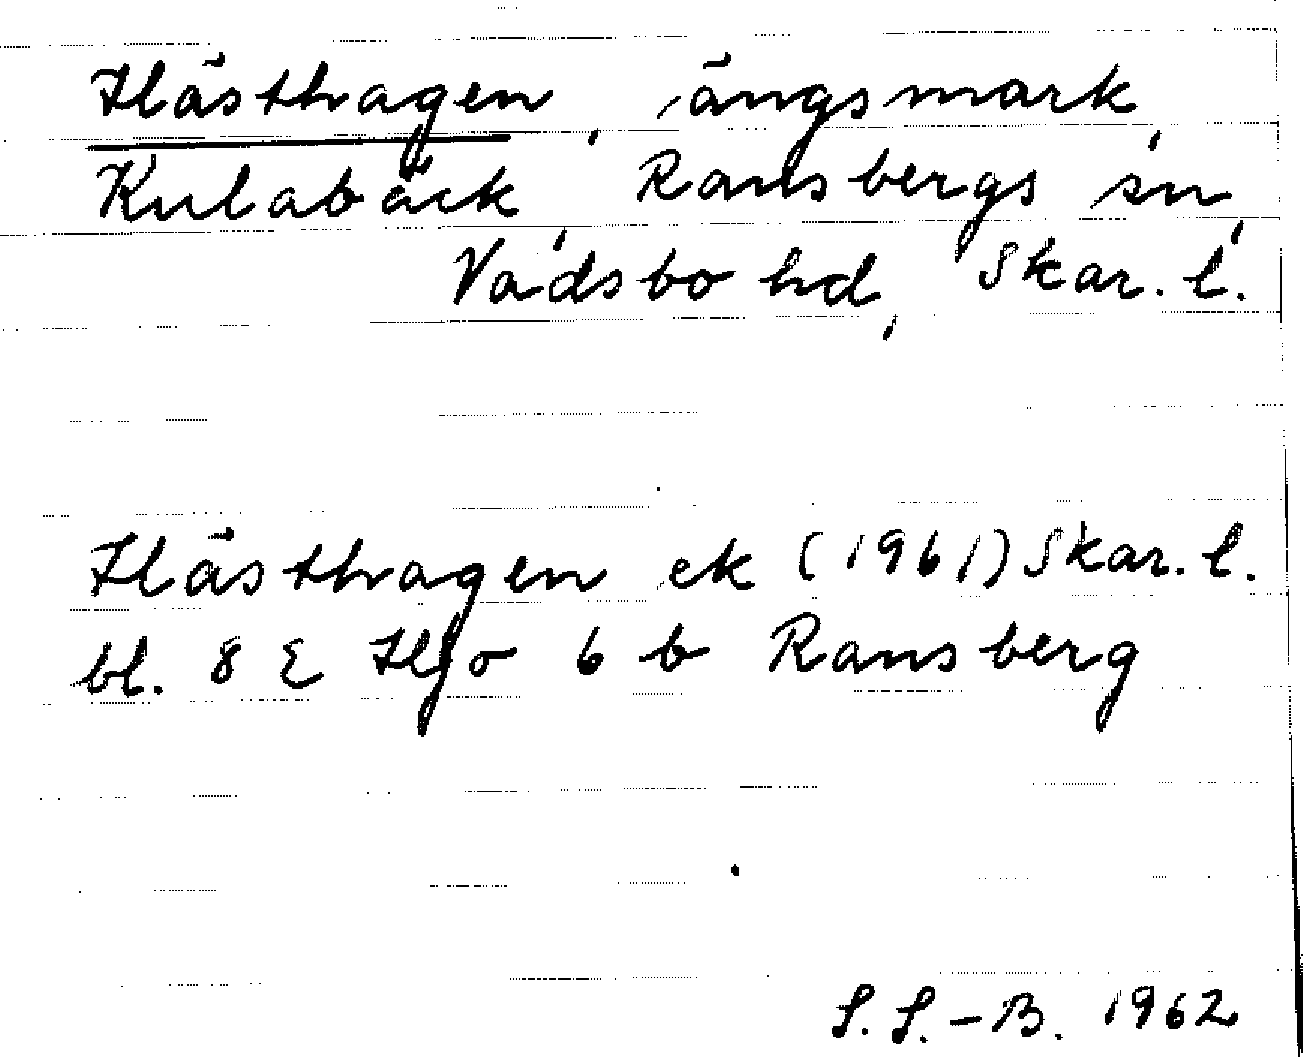 Hästhagen, ängsmark,
Kulabäck, Ransbergs sn,
Vadsbo hd, Skar. l.
Hästhagen ek (1961) Skar. l.
bl. 8 E Hjo 6 b Ransberg
S. S.-B. 1962